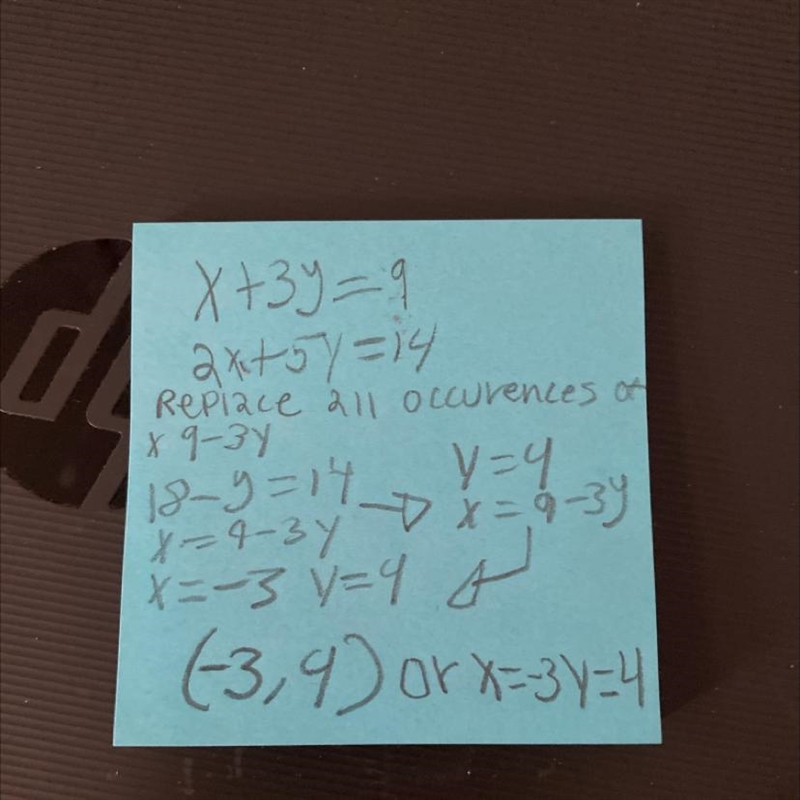 x+3y=9
2x+5y=14
Replace all occurences of
x 9-3y
18-y=14
x=9-3y
→ y=4
x=9-3y
x=-3 y=4
(-3,4) or x=-3y=4
hp